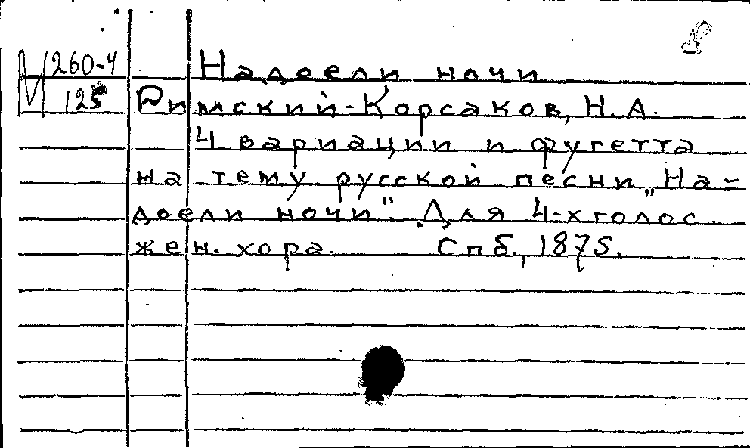 260-4 Надоели ночи
125 Римский-Корсаков, Н.А.
4 вариации и фугетта
на тему русской песни „На-
доели ночи". Для 4-х голос
жен. хора. Спб., 1875.